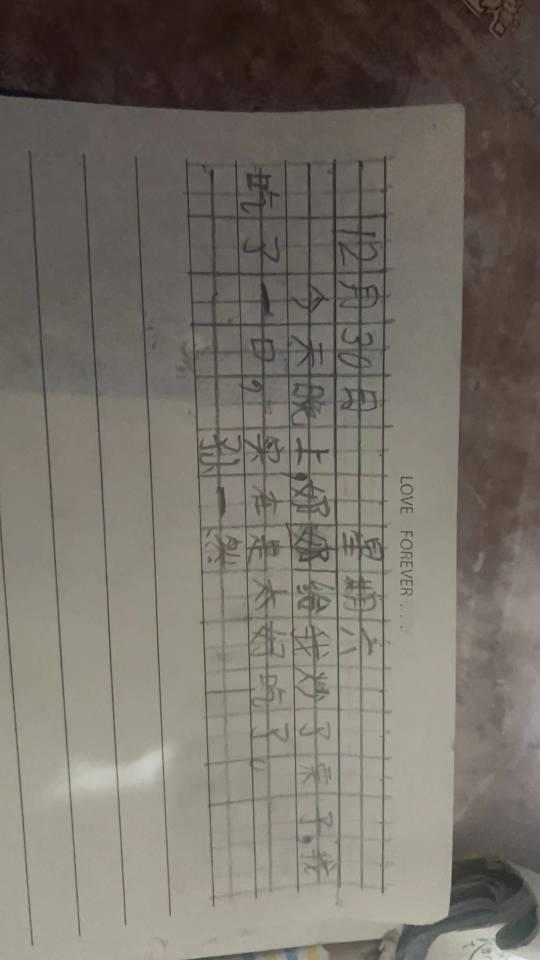 LOVE FOREVER....
12月30日 星期六
今天晚上,奶奶给我炒了栗子,我
吃了一口,实在是太好吃了。
孙一然